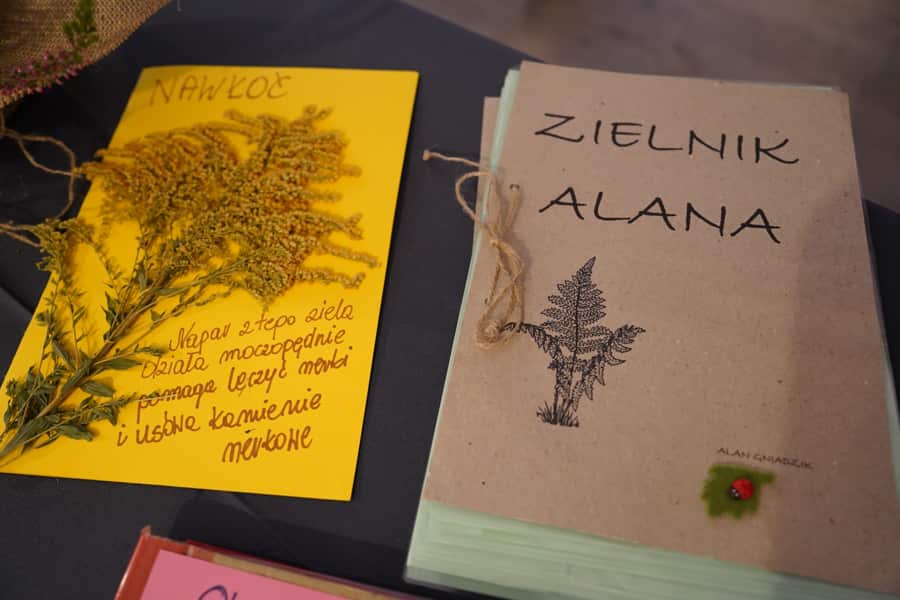 NAWŁOĆ
Napar z tego ziela
działa moczopędnie
pomaga leczyć nerki
i usuwa kamienie
nerkowe
ZIELNIK
ALANA
ALAN GNIADZIK